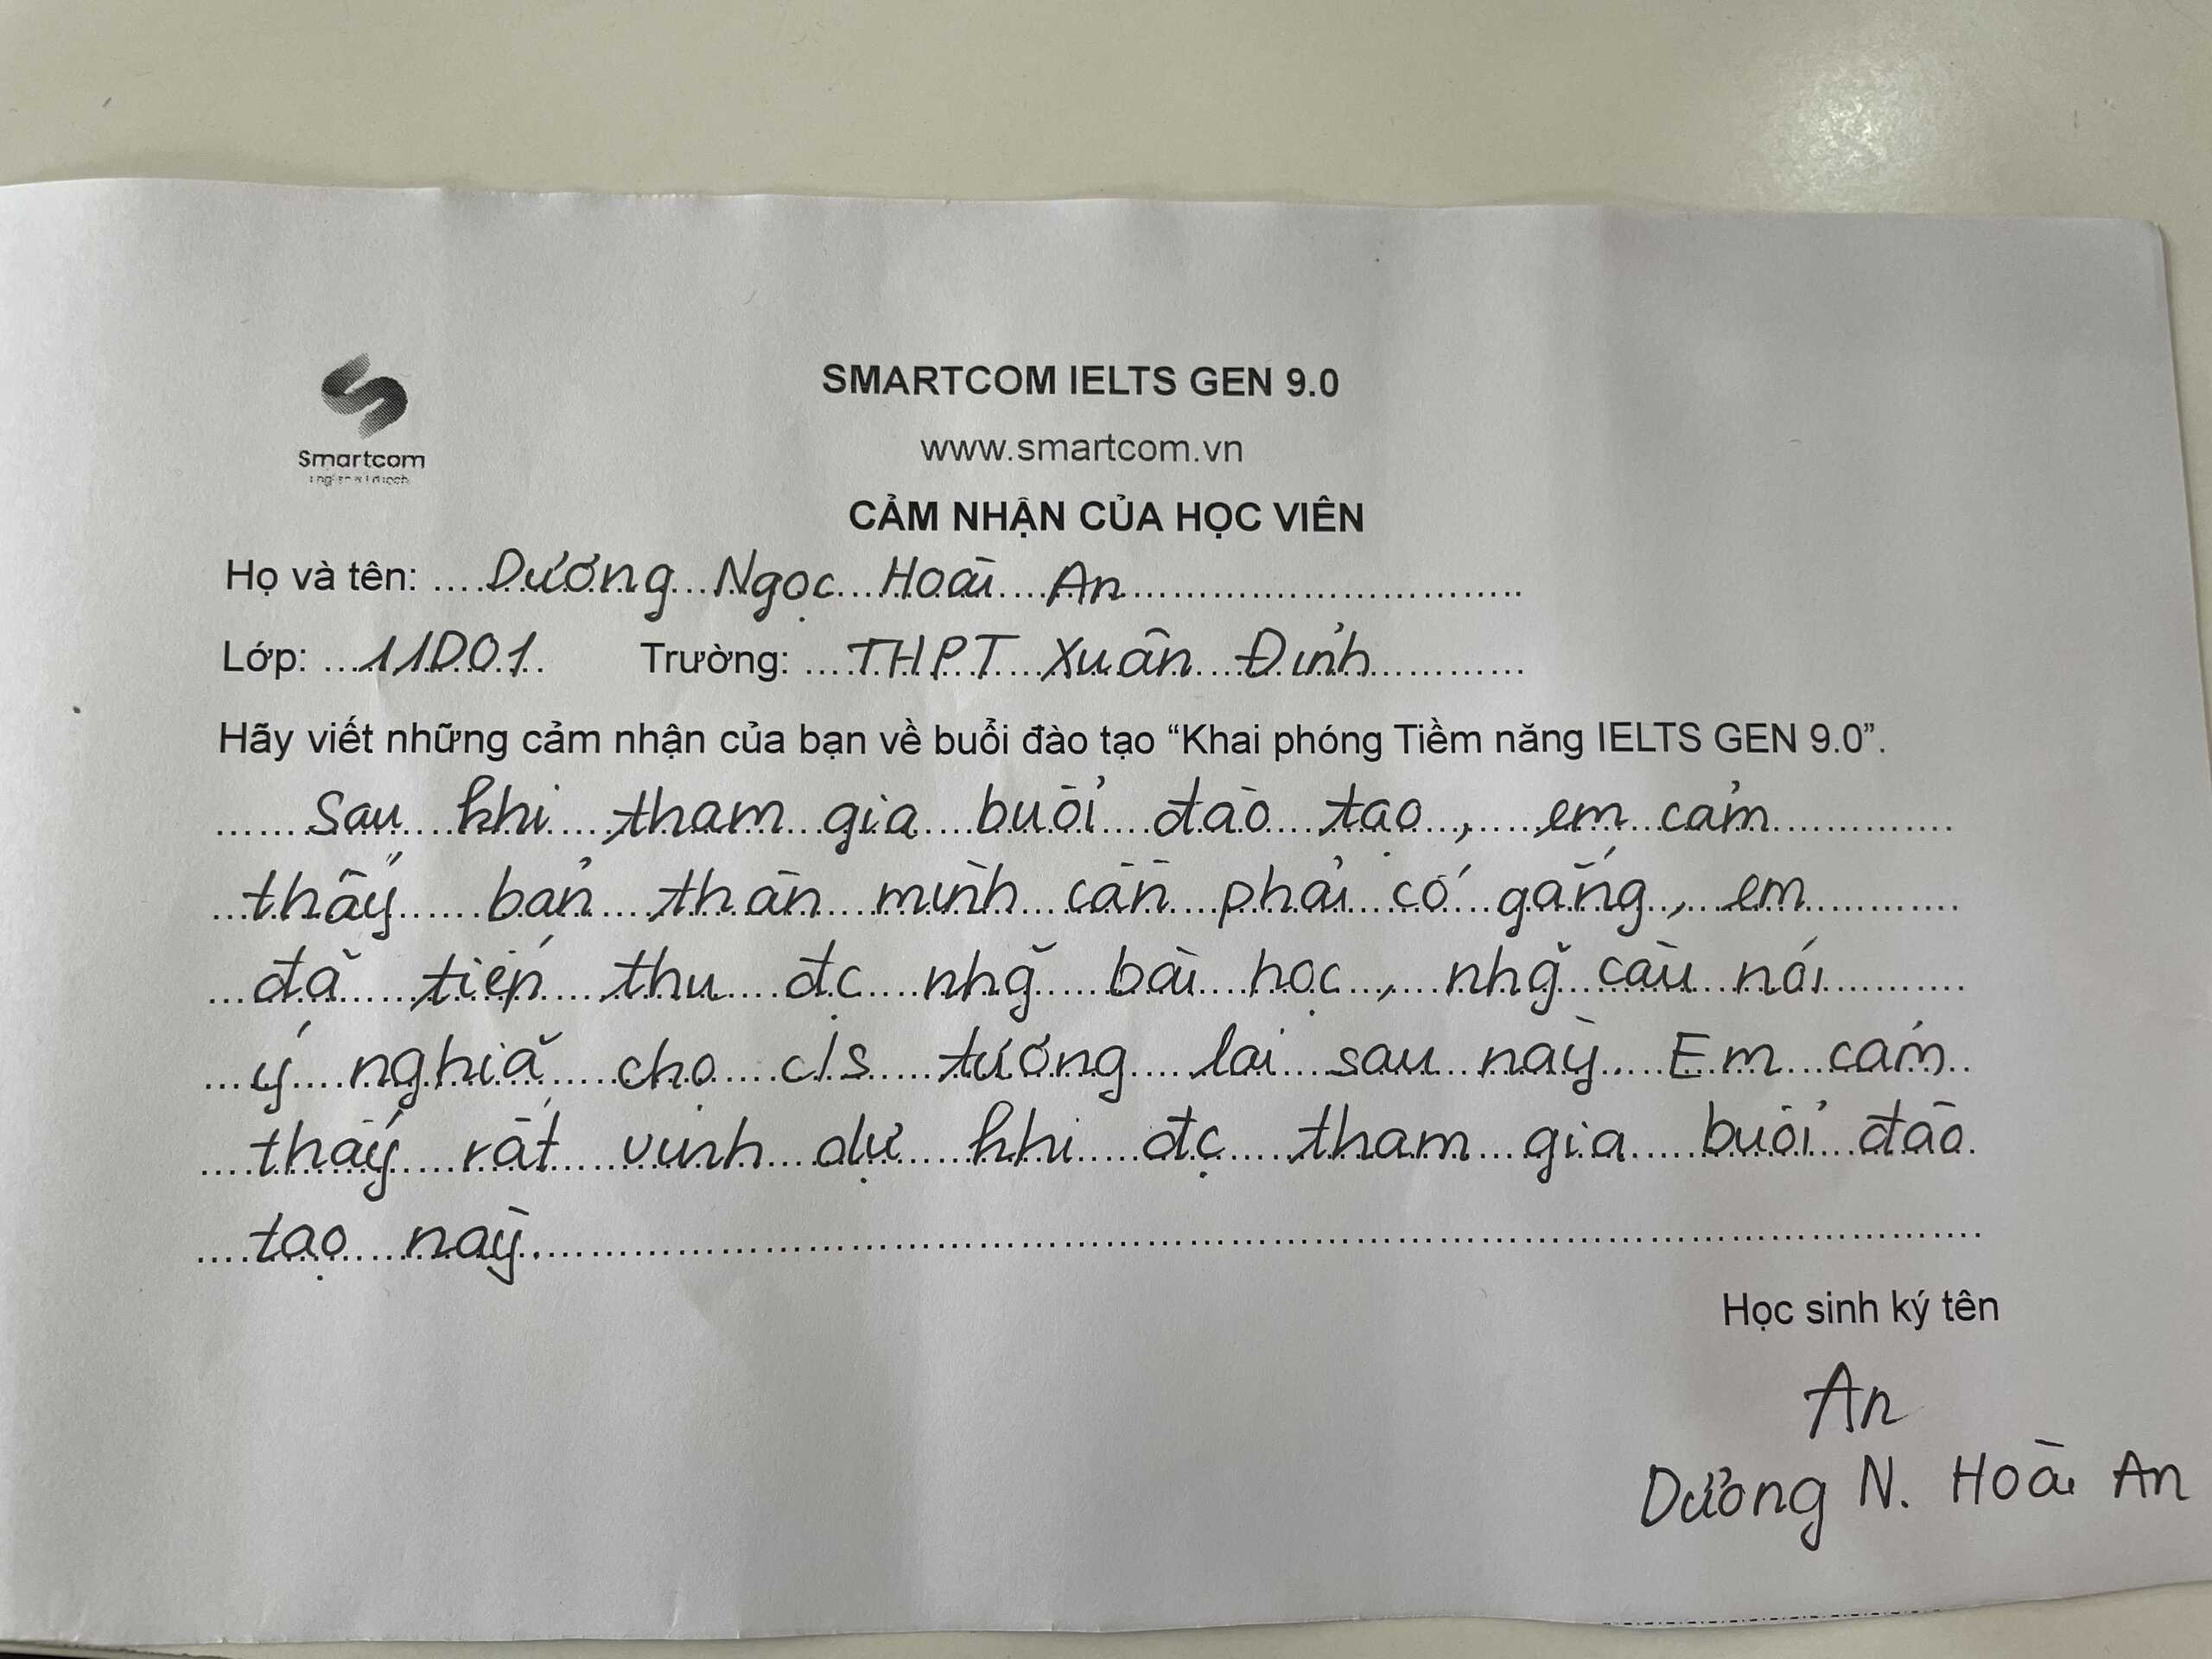 SMARTCOM IELTS GEN 9.0
Smartcom
www.smartcom.vn
CẢM NHẬN CỦA HỌC VIÊN
Họ và tên: Dương Ngọc Hoài An
Lớp: 11D01 Trường: THPT Xuân Đỉnh
Hãy viết những cảm nhận của bạn về buổi đào tạo “Khai phóng Tiềm năng IELTS GEN 9.0”.
Sau khi tham gia buổi đào tạo, em cảm
thấy bản thân mình cần phải cố gắng, em
đã tiếp thu đc nhg̃ bài học, nhg̃ câu nói
ý nghĩa cho c/s tương lai sau này. Em cảm
thấy rất vinh dự khi đc tham gia buổi đào
tạo này.
Học sinh ký tên
An
Dương N. Hoài An